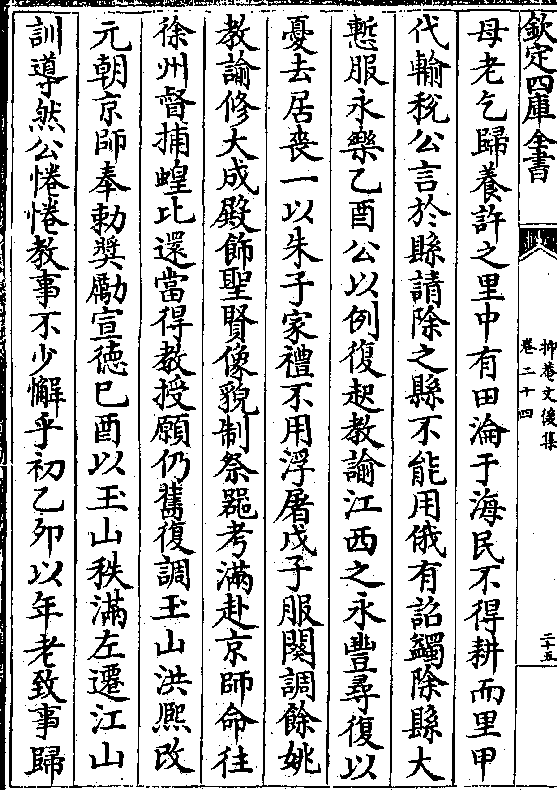 欽定四庫全書
抑菴文後集
卷二十四
二十五
母老乞歸養許之里中有田淪于海民不得耕而里甲
代輸稅公言於縣請除之縣不能用俄有詔蠲除縣大
慙服永樂乙酉公以例復起教諭江西之永豐尋復以
憂去居喪一以朱子家禮不用浮屠戊子服闋調餘姚
教諭修大成殿飾聖賢像貌制祭器考滿赴京師命往
徐州督捕蝗比還當得教授願仍舊復調玉山洪熈改
元朝京師奉勅奬勵宣徳已酉以玉山秩滿左遷江山
訓導然公惓惓教事不少懈乎初乙夘以年老致事歸